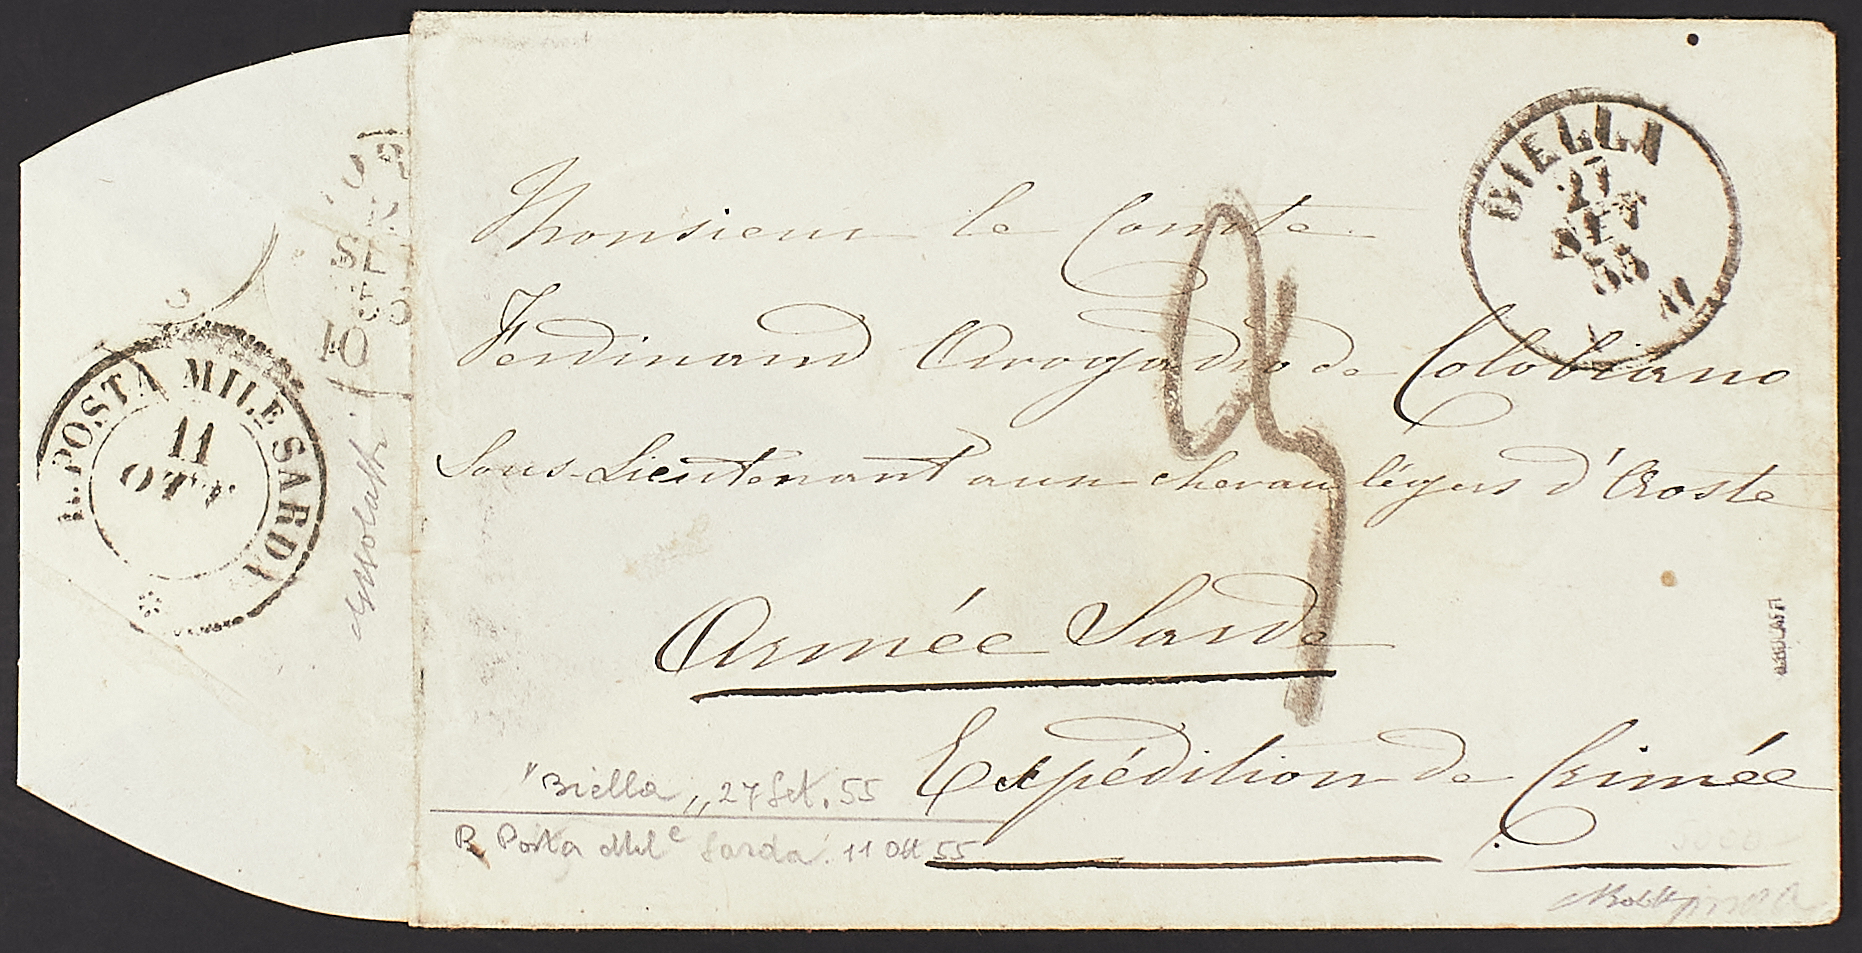 R. POSTA MILE SARDA
11
OTT
SE
55
10
BIELLA
27
SET
55
M
Monsieur le Comte
Ferdinand Avogadro de Colobiano
Sous-Lieutenant aux chevau légers d'Aoste
Armée Sarde
Expédition de Crimée
"Biella" 27 Set. 55
R. Posta Mil^e Sarda. 11 Ott 55
5000